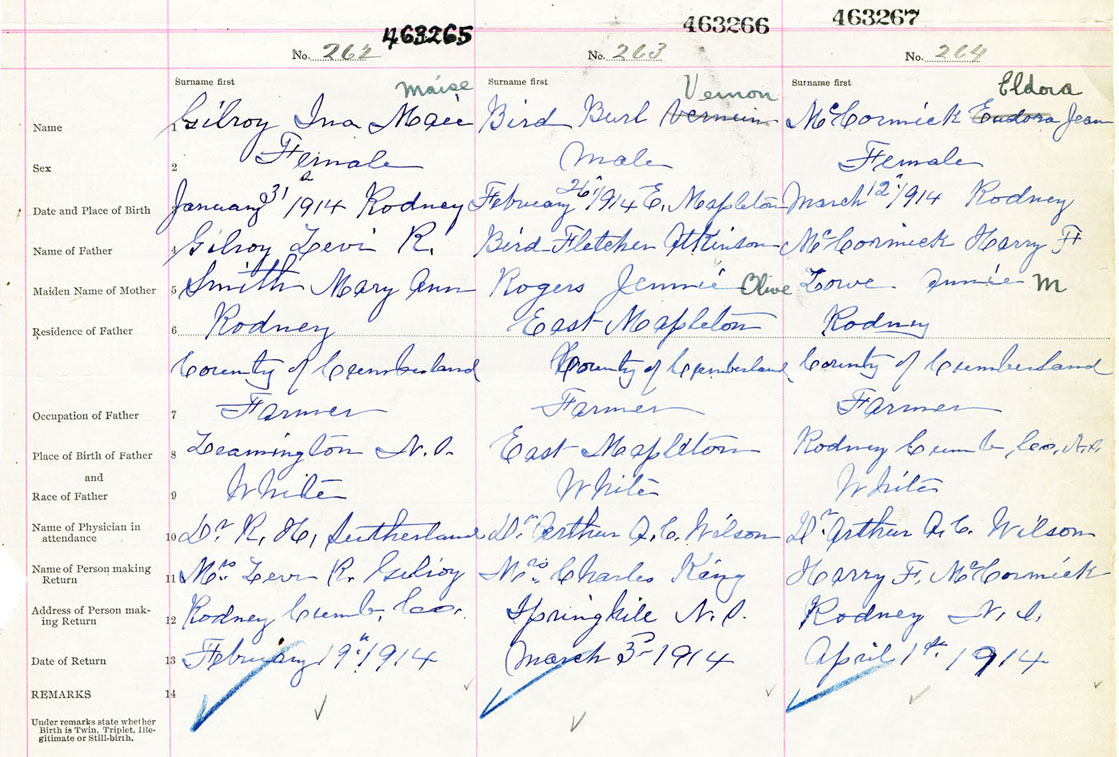 463265 463266 463267
No. 262 No. 263 No. 264
Surname first Surname first Surname first
Maise Vernon Eldora
Name 1 Gilroy Ina Maie Bird Burl Vernein McCormick Eudora Jean
Sex 2 Female Male Female
Date and Place of Birth January 31st 1914 Rodney February 26th 1914 E. Mapleton March 12th 1914 Rodney
Name of Father 4 Gilroy Levi R. Bird Fletcher Atkinson McCormick Harry F
Maiden Name of Mother 5 Smith Mary Ann Rogers Jennie Olive Lowe Annie M
Residence of Father 6 Rodney East Mapleton Rodney
County of Cumberland County of Cumberland County of Cumberland
Occupation of Father 7 Farmer Farmer Farmer
Place of Birth of Father 8 Leamington N.S. East Mapleton Rodney Cumb. Co. N.S.
and
Race of Father 9 White White White
Name of Physician in 10 Dr R. H. Sutherland Dr Arthur A. C. Wilson Dr Arthur A. C. Wilson
attendance
Name of Person making 11 Mrs. Levi R. Gilroy Mrs. Charles King Harry F. McCormick
Return
Address of Person mak- 12 Rodney Cumb. Co. Springhill N.S. Rodney N.S.
ing Return
Date of Return 13 February 19th 1914 March 3rd 1914 April 1st 1914
REMARKS 14
Under remarks state whether
Birth is Twin, Triplet, Ille-
gitimate or Still-birth.